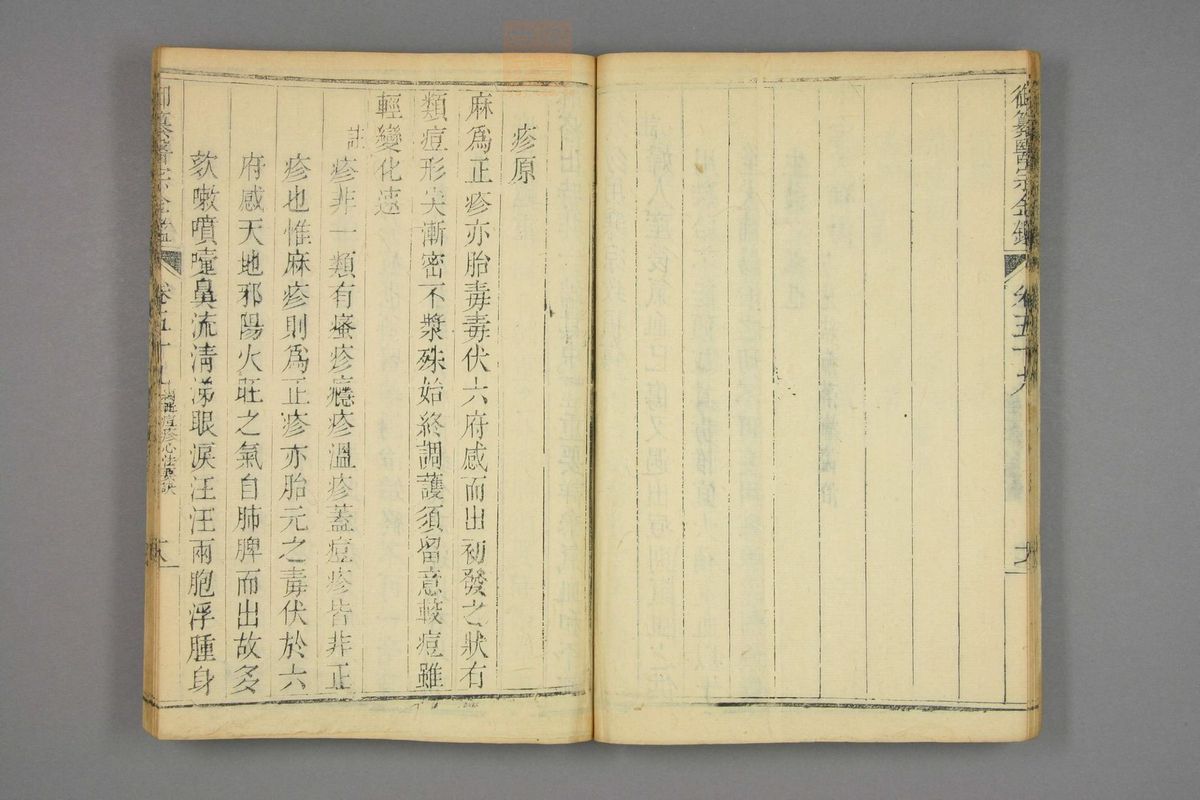 御纂醫宗金鑑
卷五十九
疹原
麻爲正疹亦胎毒毒伏六府感而出初發之狀有
類痘形尖漸密不漿殊始終調護須留意較痘雖
輕變化速
註疹非一類有瘙疹癮疹溫疹蓋痘疹皆非正
疹也惟麻疹則爲正疹亦胎元之毒伏於六
府感天地邪陽火旺之氣自肺脾而出故多
欬嗽噴嚏鼻流清涕眼淚汪汪兩胞浮腫身
御纂醫宗金鑑
卷五十九
痘疹心法要訣